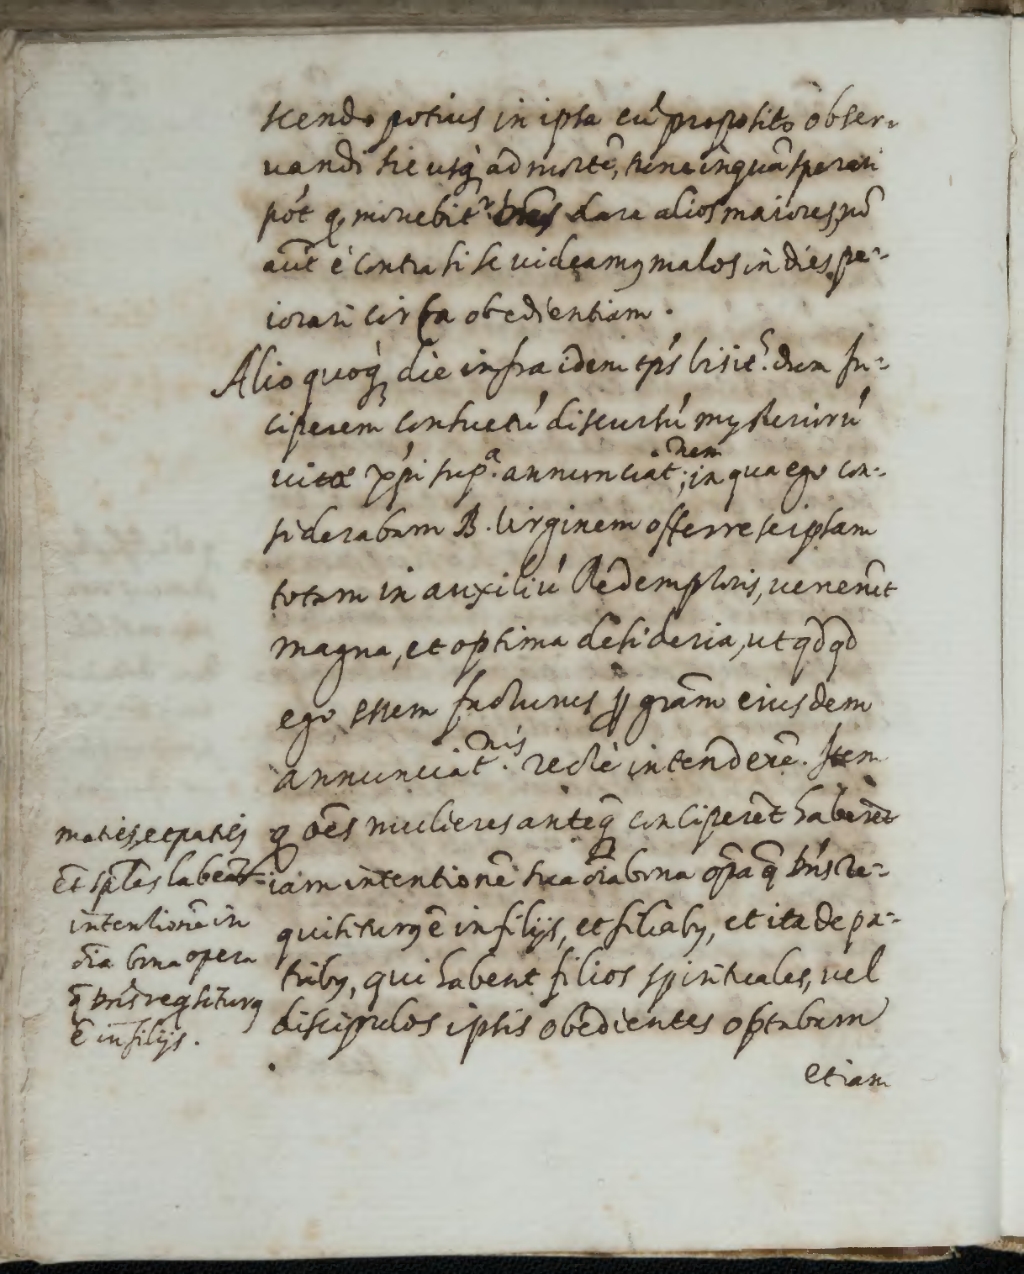 scendo potius in ipsa cū proposito obser-
uandi sic usq; ad mortē, tunc inquā sperari
pōt q, mouebit.r dare alios maiores, nō
aūt è contra si se uideamy malos in dies pe-
iorari circa obedientiam.
Alio quoq; die infra idem tp̄s visit. dum su-
ciperem consuetū discursū mysteriorū
uitæ xp̄i sup.a annunciat.nem; in qua ego con-
siderabam B. Virginem offerre seipsam
totam in auxiliū Redemptoris, uenerūt
magna, et optima desideria, ut qdqd
ego essem facturus p grām eiusdem
annunciat.nis rectè intenderē. Item
q oēs mulieres anteq̄ conciperēt haberēt
iam intentionē sua oīa bona opa q̄ bn̄s re-
quisiturq ē in filijs, et filiaby, et ita de pa-
triby, qui habent filios spirituales, uel
discipulos ipsis obedientes optabam
etiam
matres, et patres
ēt sp̄les habeāt
intentionē in
oīa bona opera
q̄ bn̄s reqsiturq
ē in filijs.